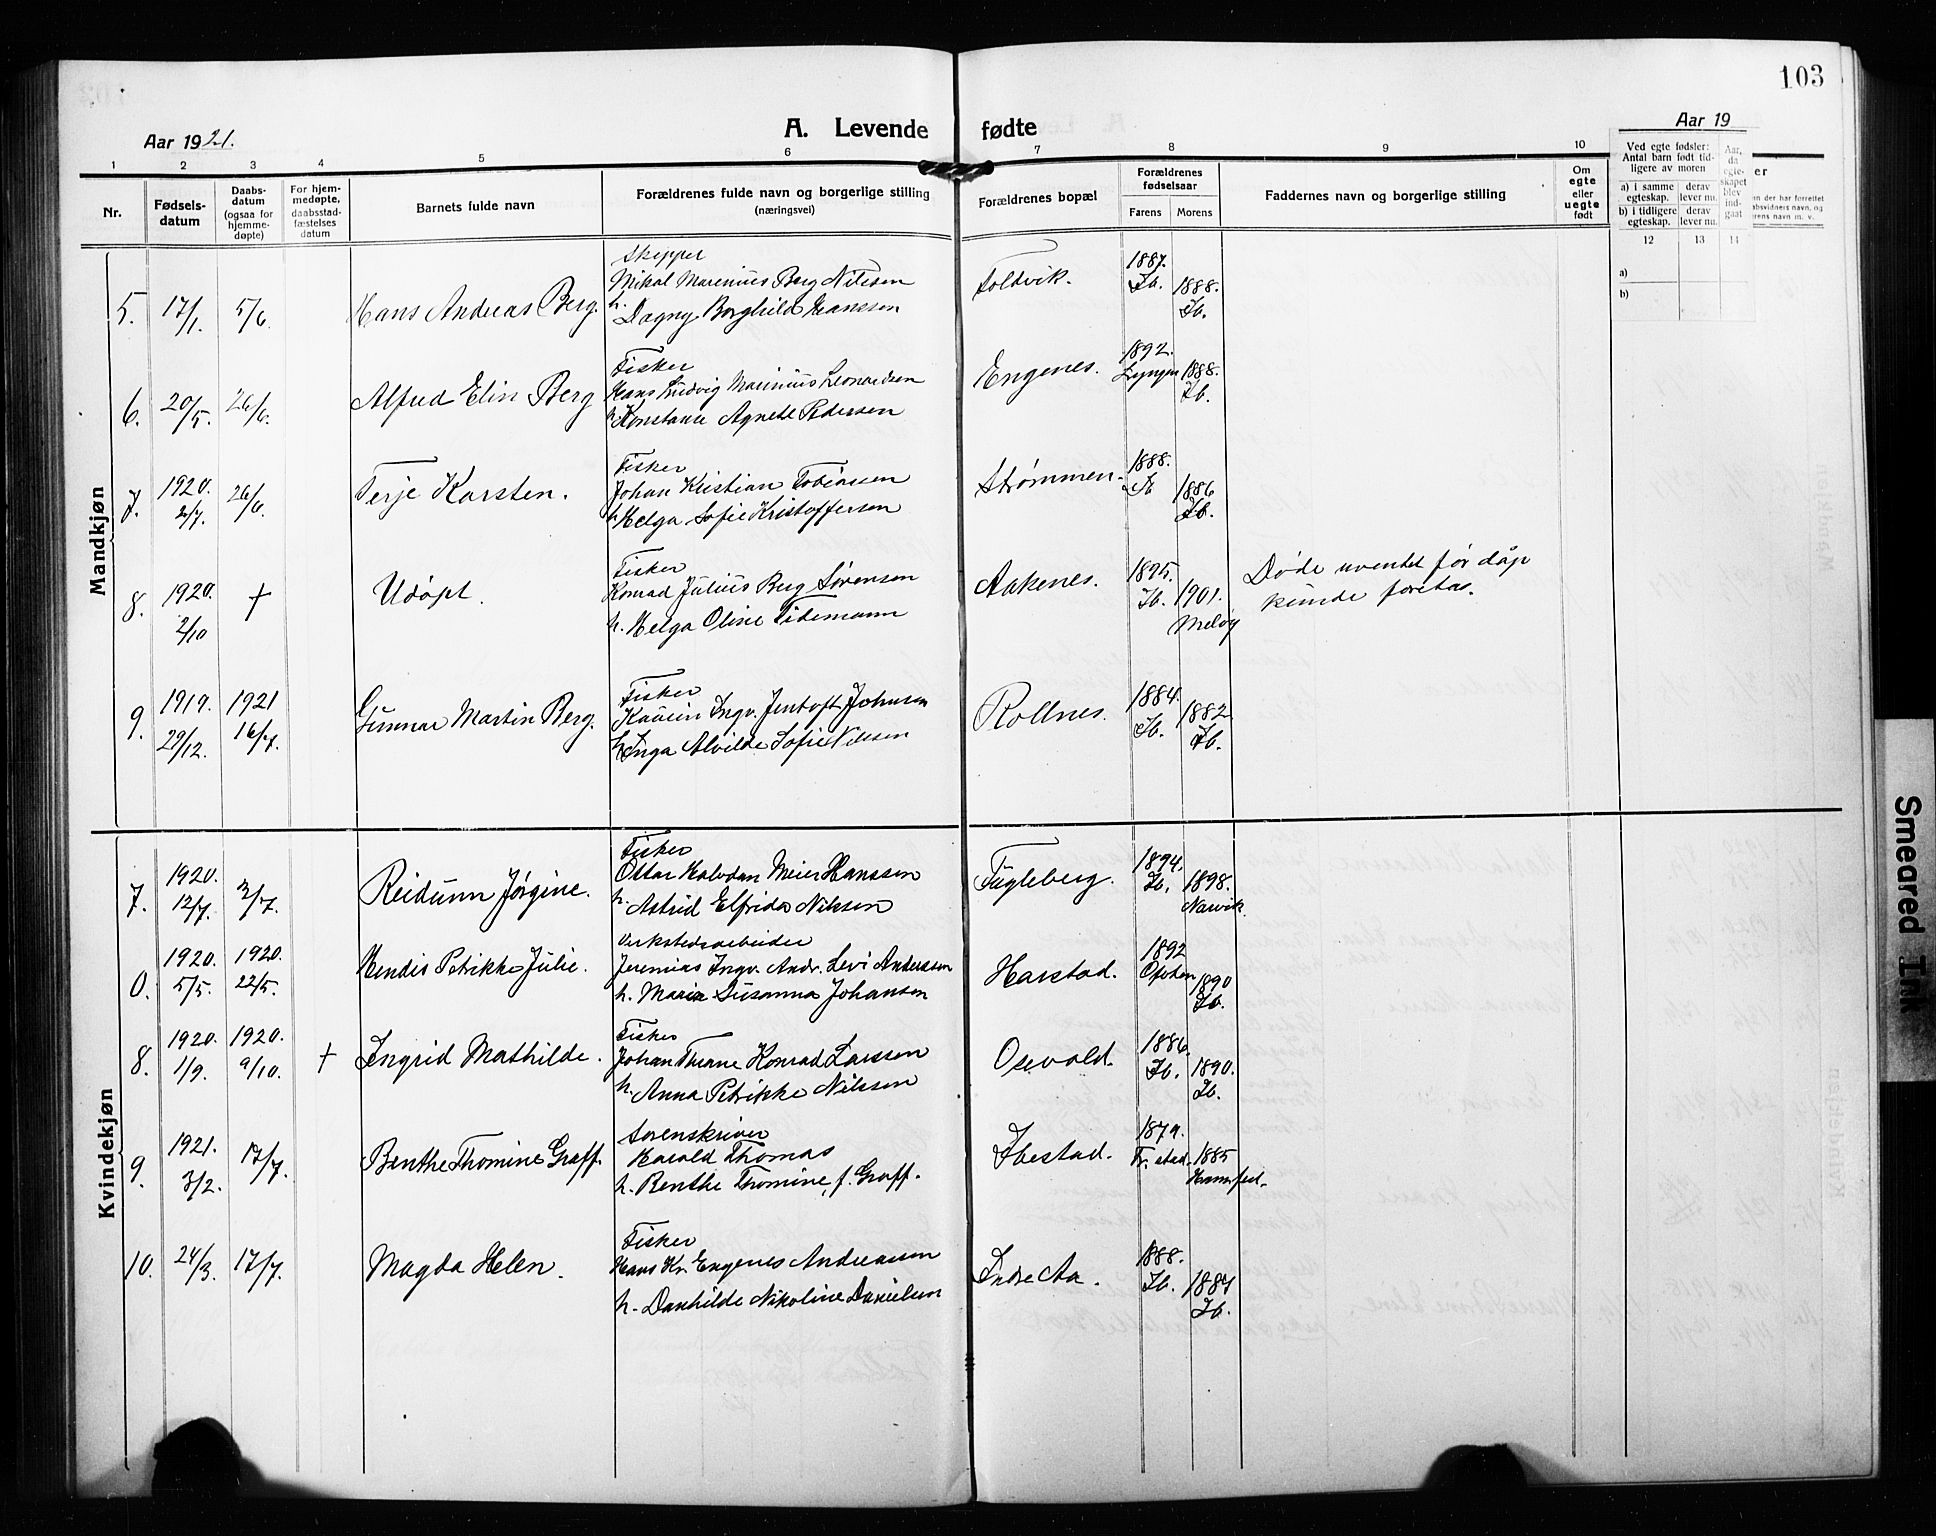 103
Aar 1921.
A. Levende fødte
Aar 19
1 2 3 4 5 6 7 8 9 10
Nr.
Fødsels-
datum
Daabs-
datum
(ogsaa for
hjemme-
døpte)
For hjem-
medøpte,
daabsstad-
fæstelses
datum
Barnets fulde navn
Forældrenes fulde navn og borgerlige stilling
(næringsvei)
Forældrenes bopæl
Forældrenes
fødselsaar
Farens Morens
Faddernes navn og borgerlige stilling
Om
egte
eller
uegte
født
Ved egte fødsler:
Antal barn født tid-
ligere av moren
a) i samme
egteskap.
derav
lever nu.
b) i tidligere
egteskap.
derav
lever nu.
Aar,
da
egte-
skapet
blev
ind-
gaat
12 13 14
a)
b)
Mandkjøn
5. 17/1. 5/6. Hans Andreas Berg.
Skipper
Mikal Marenius Berg Nilsen
h. Dagny Borghild Hanssen
Soldvik. 1887. Ib. 1888. Ib.
6. 20/5. 26/6. Alfred Elin Berg
Fisker
Hans Ludvig Marinius Leonardsen
h. Konstanse Agnete Pedersen
Engenes. 1892. Lyngen 1888. Ib.
7. 1920. 2/7. 26/6. Terje Karsten.
Fisker
Johan Kristian Tobiassen
h. Helga Sofie Kristoffersen
Strømmen. 1888. Ib. 1886 Ib.
8. 1920. 2/10 † Udøpt.
Fisker
Konrad Julius Berg Sørensen
h. Helga Oline Tidemann
Aakenes. 1895. Ib. 1901. Meløy
Døde uventet før dåp
kunde foretas.
9. 1919. 29/12. 1921 16/7. Gunnar Martin Berg.
Fisker
Ingv. Jentoft Johnsen
h. Inga Alvilde Sofie Nilsen
Rollnes. 1884. Ib. 1882. Ib.
Kvindekjøn
7. 1920. 12/7. 3/7. Reidunn Jørgine.
Fisker
Ottar Halvdan Meier Hanssen
h. Astrid Elfrida Nilssen
Fugleberg. 1894. Ib. 1898. Narvik.
0. 1920. 5/5. 1920. 22/5. Hendis Petrikke Julie.
Verkstedsarbeider
Jeremias Ingv. Andr. Levi Anderssen
h. Maria Susanna Johansen
Harstad. 1892 Ofoten 1890 Ib.
8. 1920. 1/9. 1920. 9/10. † Ingrid Mathilde.
Fisker
Johan Thrane Konrad Larssen
h. Anna Petrikke Nilssen
Osevold. 1886. Ib. 1890. Ib.
9. 1921. 3/2. 17/7. Benthe Thomine Graff.
Sorenskriver
Harald Thomas
h. Benthe Thomine, f. Graff.
Ibestad. 1879. Fr.stad. 1885 Hammerfest.
10. 24/3. 17/7. Magda Helen.
Fisker
Hans Kr. Engenes Andreassen
h. Danhilde Nikoline Danielsen
Indre Aa. 1888. Ib. 1887 Ib.
Smeared Ink